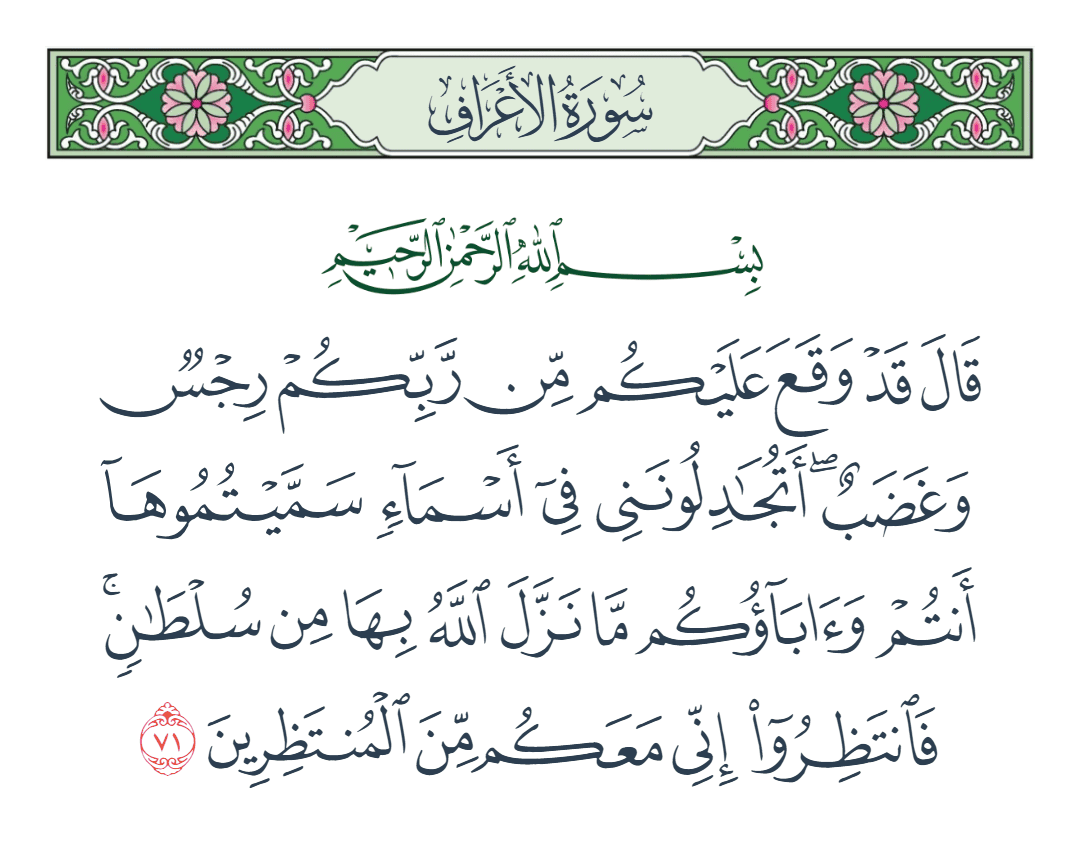 سُورَةُ الأَعْرَافِ
بِسْمِ ٱللَّهِ ٱلرَّحْمَٰنِ ٱلرَّحِيمِ
قَالَ قَدْ وَقَعَ عَلَيْكُم مِّن رَّبِّكُمْ رِجْسٌ
وَغَضَبٌ ۖ أَتُجَٰدِلُونَنِى فِىٓ أَسْمَآءٍ سَمَّيْتُمُوهَآ
أَنتُمْ وَءَابَآؤُكُم مَّا نَزَّلَ ٱللَّهُ بِهَا مِن سُلْطَٰنٍ ۚ
فَٱنتَظِرُوٓا۟ إِنِّى مَعَكُم مِّنَ ٱلْمُنتَظِرِينَ ٧١